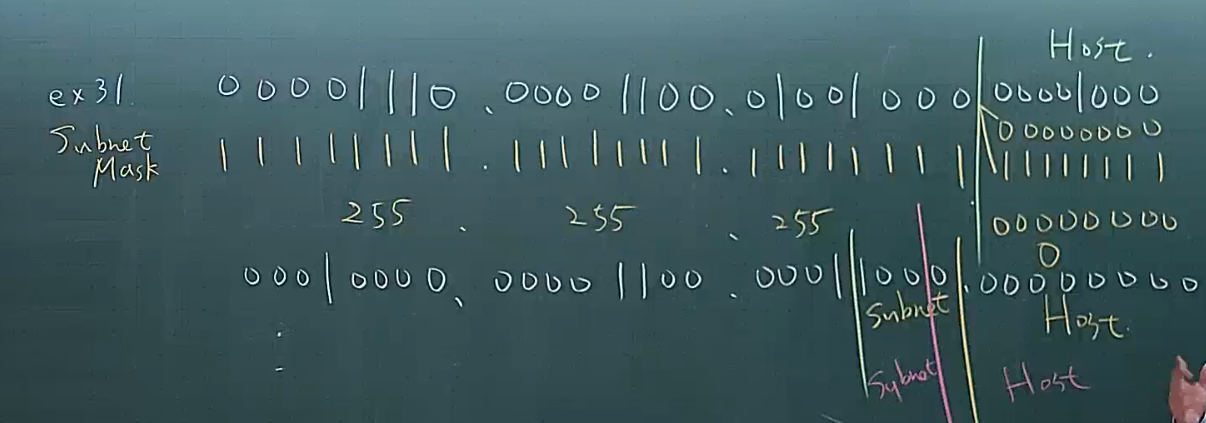 Host.
ex31. 00001110.00001100.01001000 00001000
00000000
Subnet 11111111.11111111.11111111 11111111
Mask
255 . 255 . 255 00000000
0
00010000.00001100.00011000.00000000
Subnet Host.
Subnet Host